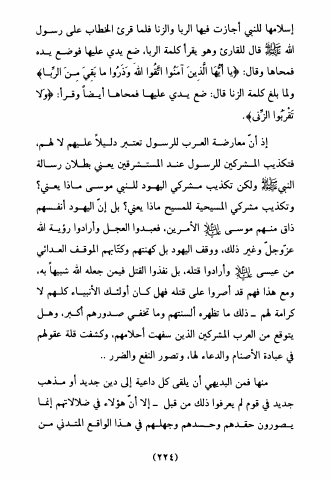 إسلامها للنبي أجازت فيها الربا والزنا فلما قرئ الخطاب على رسول
الله ﷺ قال للقارئ وهو يقرأ كلمة الربا، ضع يدي عليها فوضع يده
فمحاها وقال: ﴿يا أيُّها الَّذينَ آمَنُوا اتَّقُوا الله وَذَرُوا ما بَقِيَ مِنَ الرِّبا﴾
ولما بلغ كلمة الزنا قال: ضع يدي عليها فمحاها أيضاً وقرأ: ﴿وَلا
تَقْرَبُوا الزِّنى﴾.
إذ أنّ معارضة العرب للرسول تعتبر دليلاً عليهم لا لهم،
فتكذيب المشركين للرسول عند المستشرقين يعني بطلان رسالة
النبي ﷺ ولكن تكذيب مشركي اليهود للنبي موسى ماذا يعني؟
وتكذيب مشركي المسيحية للمسيح ماذا يعني؟ بل إنّ اليهود أنفسهم
ذاق منهم موسى الأمرين، فعبدوا العجل وأرادوا رؤية الله
عزّوجلّ وغير ذلك، ووقف اليهود بل كهنتهم وكتّابهم الموقف العدائي
من عيسى وأرادوا قتله، بل نفذوا القتل فيمن جعله الله شبيهاً به،
ومع هذا فهم قد أصروا على قتله فهل كان أولئك الأنبياء كلهم لا
كرامة لهم ـ ذلك ما تظهره ألسنتهم وما تخفي صدورهم أكبر، وهل
يتوقع من العرب المشركين الذين سفهت أحلامهم، وكشفت قلة عقولهم
في عبادة الأصنام والدعاء لها، وتصور النفع والضرر ..
منها فمن البديهي أن يلقى كل داعية إلى دين جديد أو مذهب
جديد في قوم لم يعرفوا ذلك من قبل ـ إلا أنّ هؤلاء في ضلالاتهم إنما
يصورون حقدهم وحسدهم وجهلهم في هذا الواقع المتدني من
(٢٢٤)